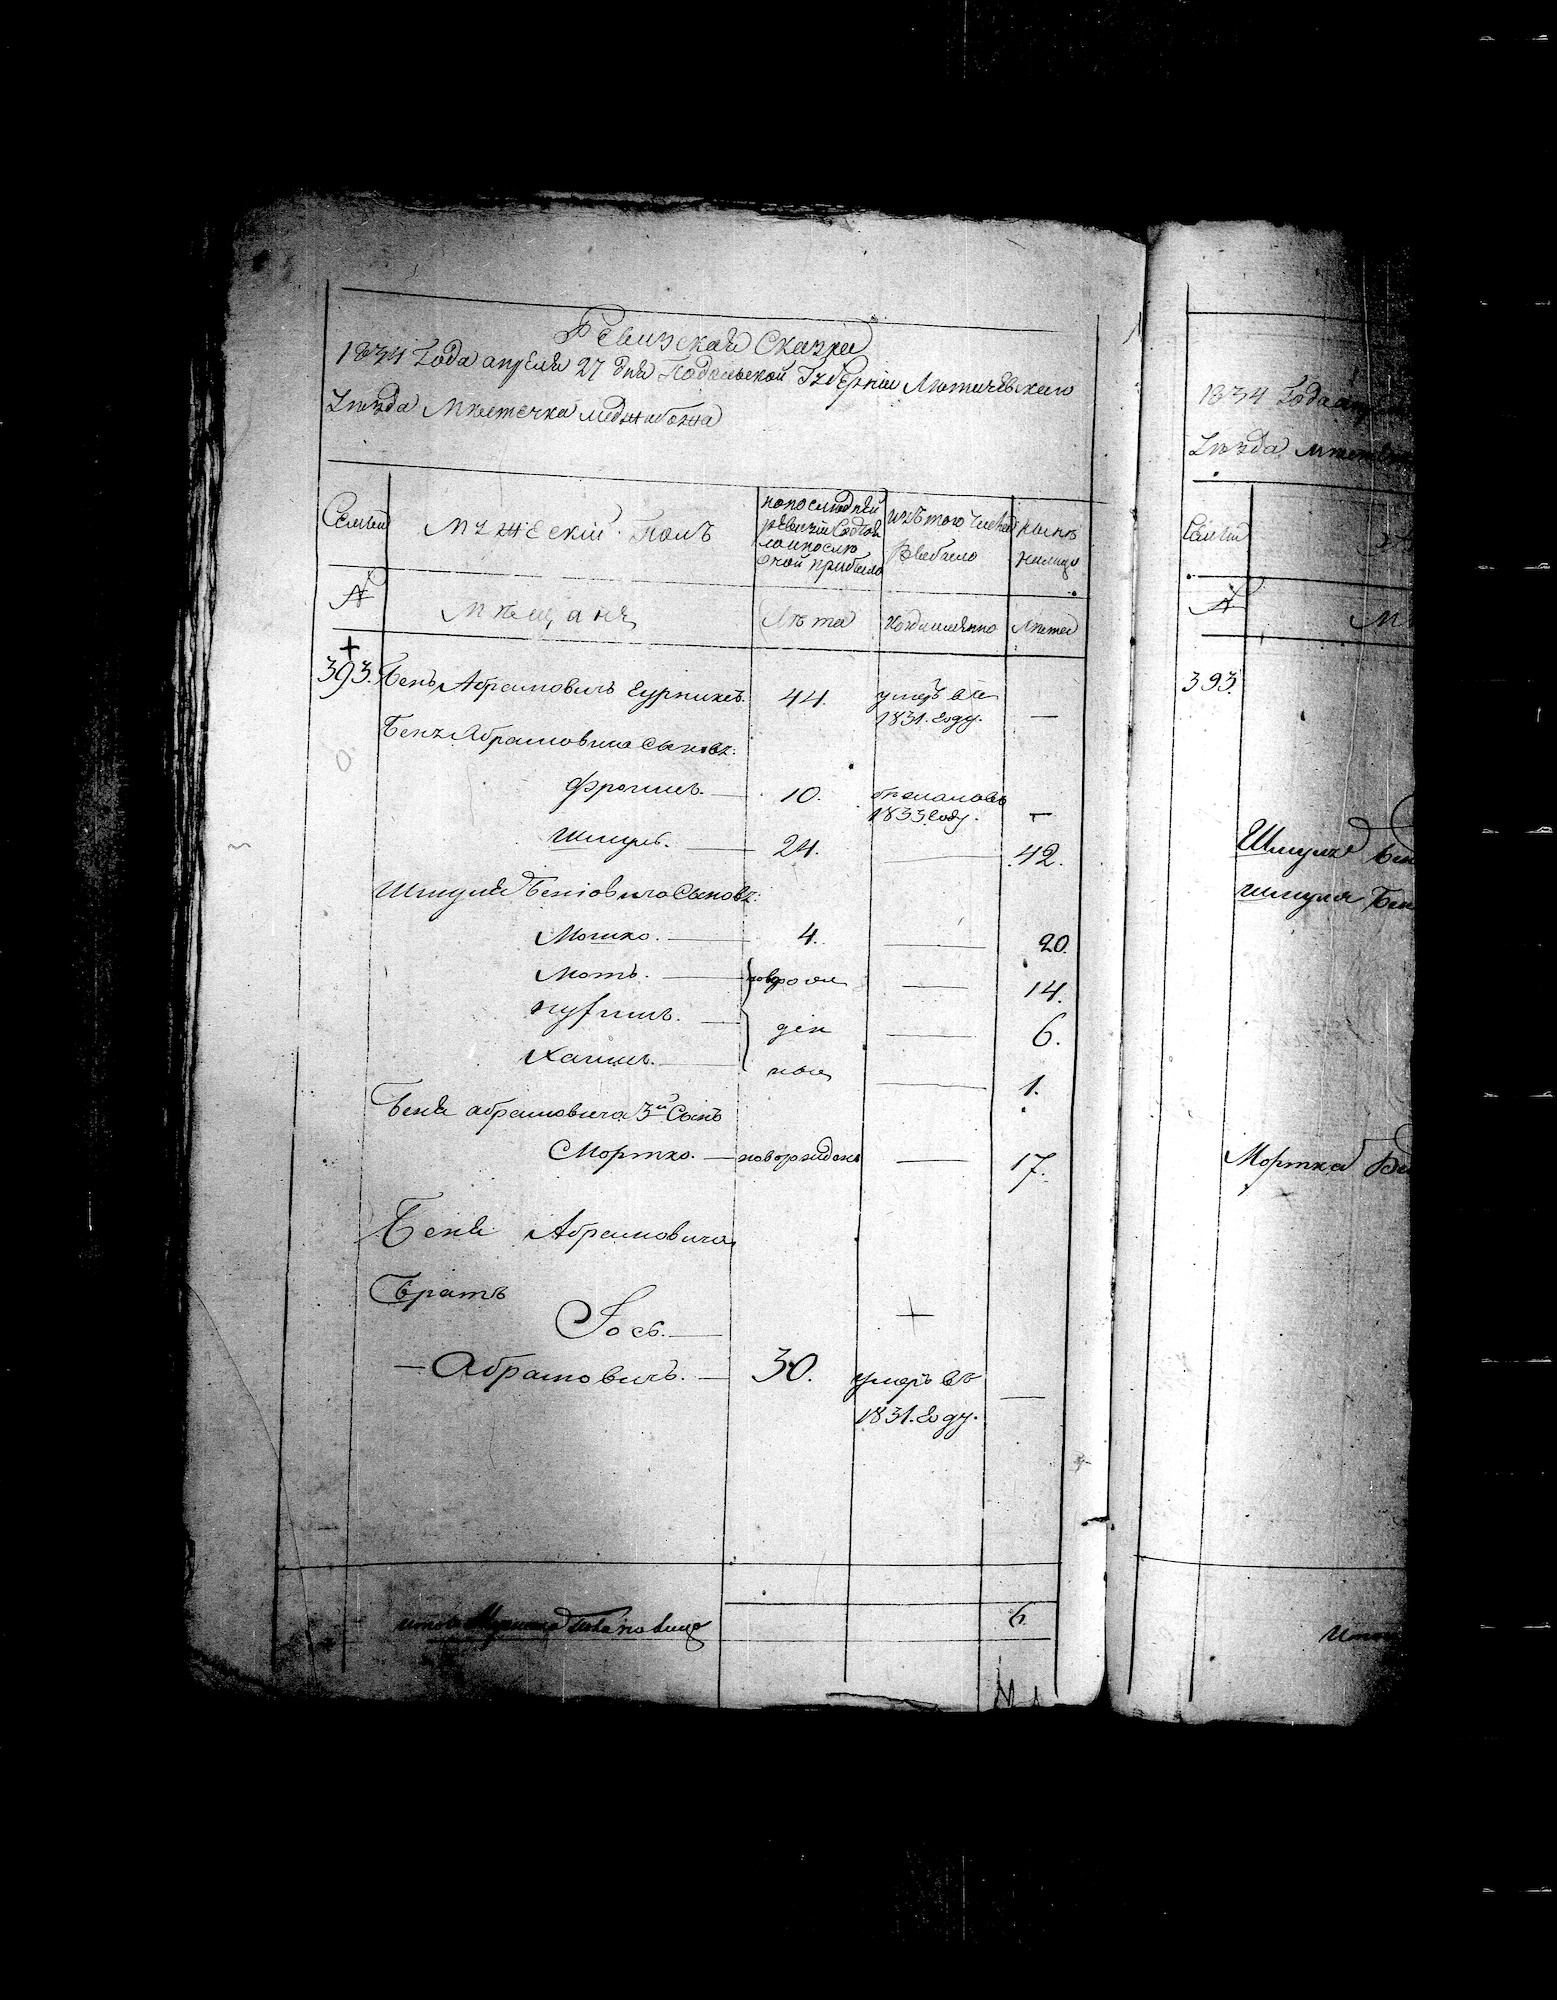 Ревизская Сказка
1834 Года апреля 27 дня Подольской Губернии Летичевского
Уезда Местечка Меджибожа
Семьи
Мужескій Полъ
по последней ревизіи Состояло и после оной прибыло
изъ того числа выбыло
ныне налицо
№
Мещане
Лета
Когда именно
Лета
393. Бень Абрамовичъ 44. умеръ въ —
1831. году.
Беня Абрамовича сыновъя:
Фроимъ. — 10. 1833 году. —
Шмуль. — 24. — 42.
Шмуля Беніовича Сыновья:
Мошко. — 4. — 20.
Мотъ. — новорож — 14.
— ден — 6.
Хаимъ. — ные — 1.
Беня абрамовича 3й Сынъ
Мортко. — новорожденъ — 17.
Беня Абрамовича
Братъ
Іось. —
— Абрамовичъ. — 30. умеръ въ —
1831. году.
Итого Мужеска Пола на лицо 6.
1834 Года
Уезда
Семьи
№
М
393.
Шмуля
Шмуля Бен
Мортка
Итого